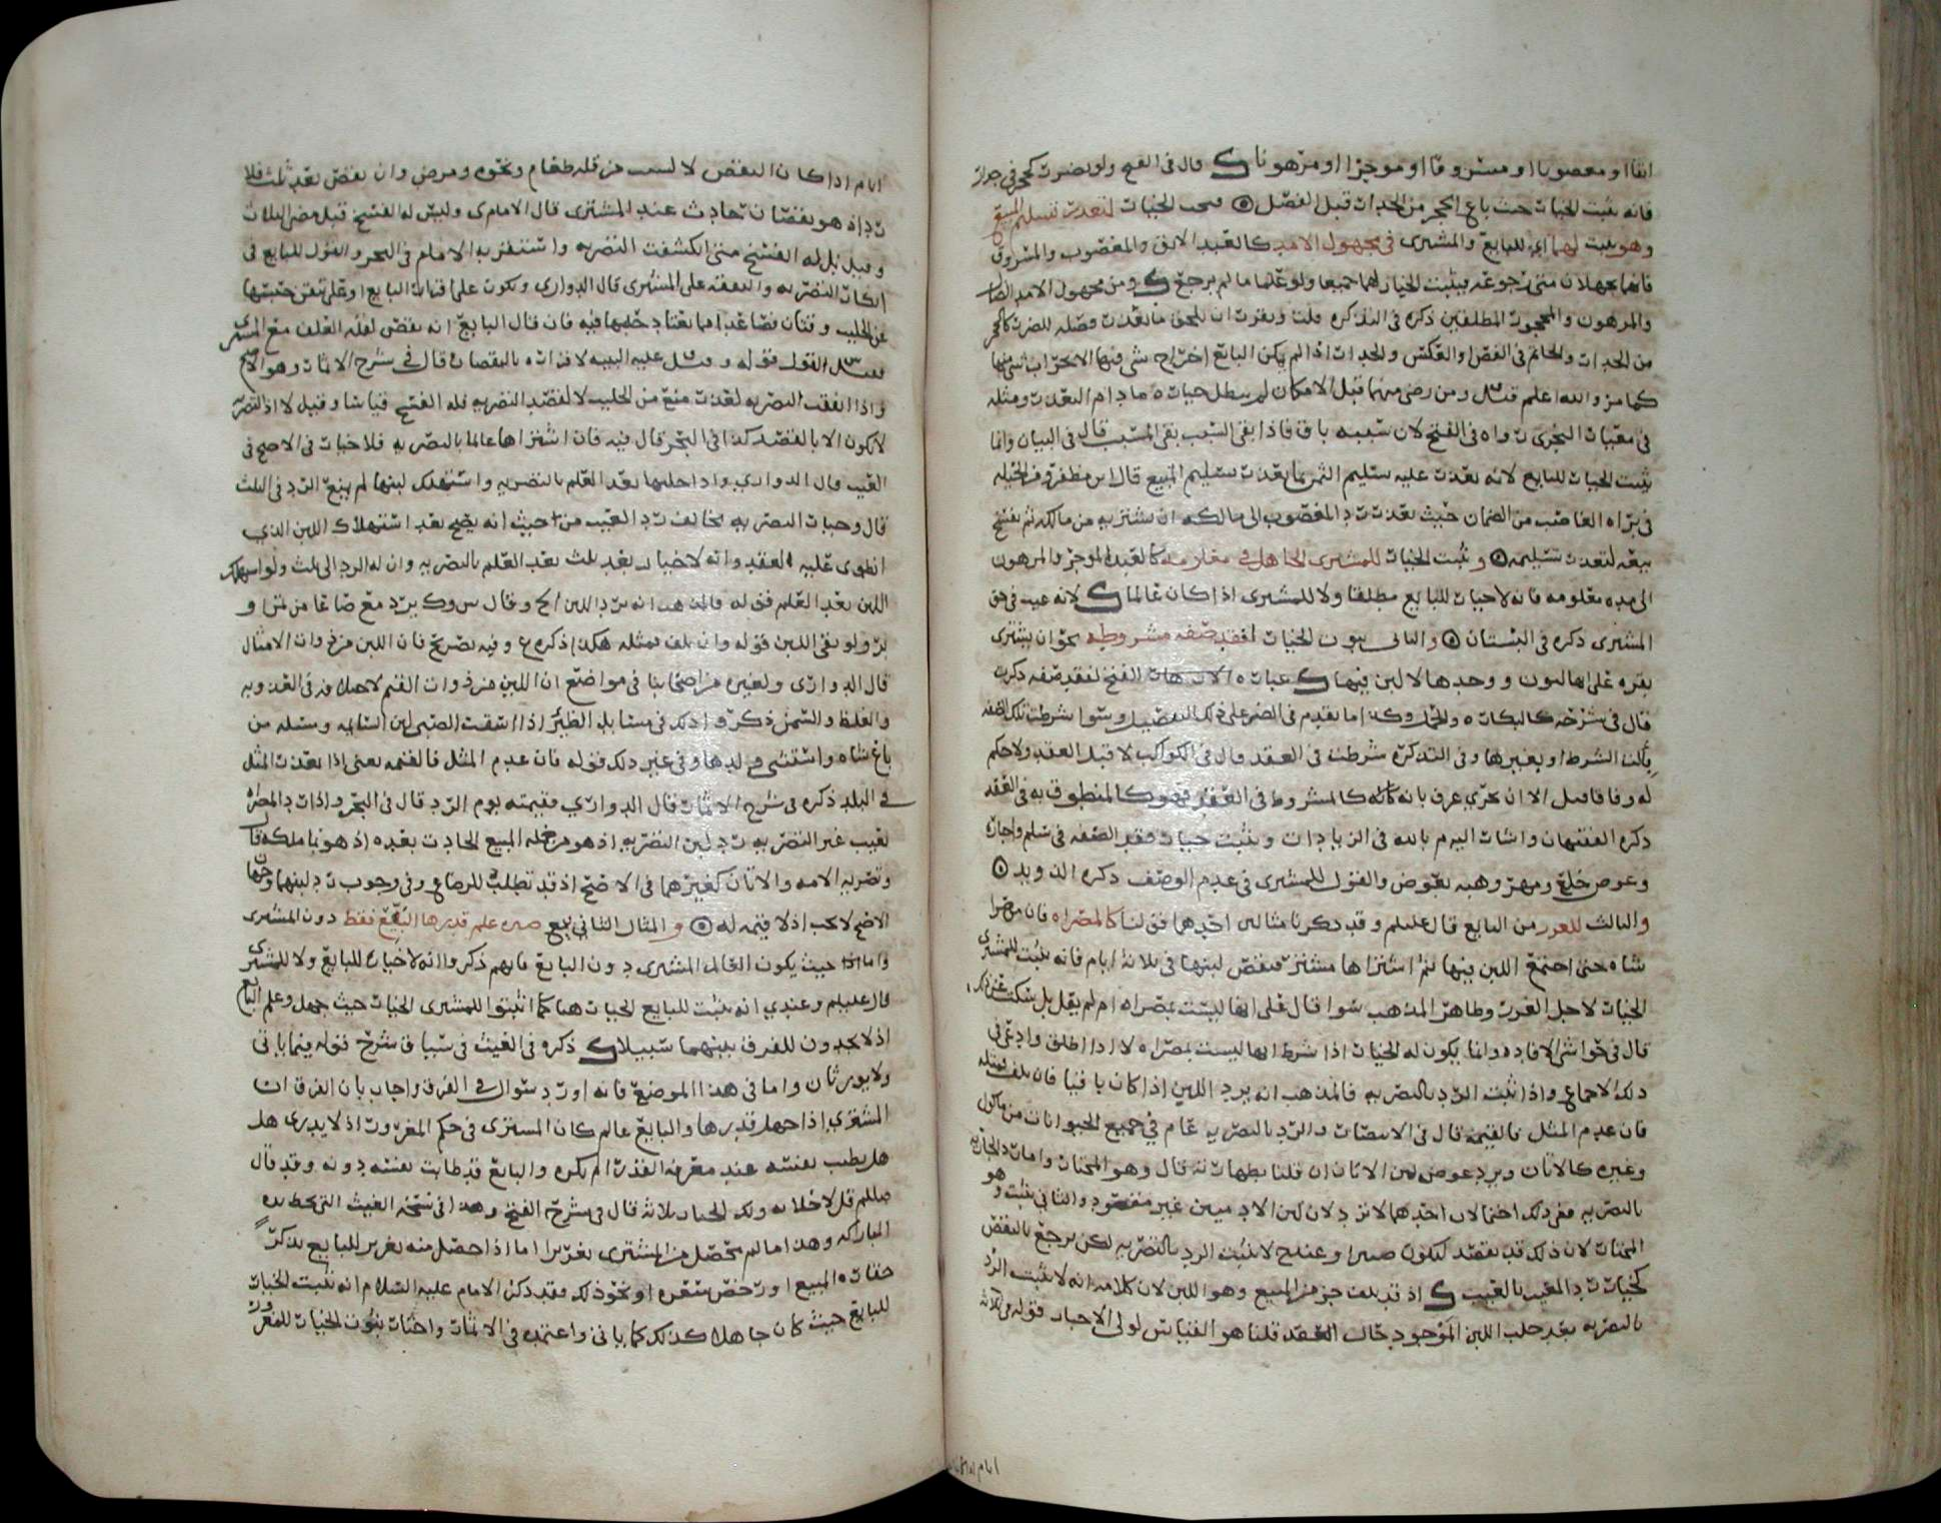 او مغصوبا او مسروقا او موجرا او مرهونا قال في الفتح ولو
فانه يثبت الخيار حيث باع الحجر من الجدار قبل الفصل الخيار لتعذر تسليم المبيع
وهو يثبت لهما اي للبايع والمشتري في مجهول الامد كالعبد الابق والمغصوب والمسروق
فانهما يجهلان متى رجوعه فيثبت الخيار لهما جميعا ولو علما ما لم يرجع ومن مجهول الامد
والمرهون والمحجور المطلقين ذكره في التذكرة قلت
من الجدار والخاتم في الفص او العكس والجدار اذا لم يكن البايع
كما مر والله اعلم ومن رضي منهما قبل الامكان لم يبطل خياره ما دام التعذر ومثله
في الفتح لان سببه باق فاذا بقي السبب بقي المسبب قال في البيان وانما
يثبت الخيار للبايع لانه تعذر عليه تسليم الثمن بما تعذر تسليم المبيع قال ابن مظفر
الغاصب من الضمان حيث تعذر رد المغصوب الى مالكه ان يشتريه من مالكه ثم يفسخ
بيعه لتعذر تسليمه ويثبت الخيار للمشتري الجاهل في معلومه كالعبد الموجر والمرهون
الى مدة معلومة فانه لا خيار للبايع مطلقا ولا للمشتري اذا كان عالما لانه عيب في حق
المشتري ذكره في البستان والثاني ثبوت الخيار لفقد صفة مشروطة نحو ان يشتري
بقرة على انها لبون ووجدها لا لبن فيها عبارة الفتح لفقد صفة ذكرت
قال في شرحه كالبكارة وكذا ما تقدم في الضر على ذلك التفصيل وسوا شرطت تلك الصفة
بآلت الشرط او بغيرها وفي التذكرة شرطت في العقد قال في الكواكب لا قبل العقد ولا حكم
له وفاقا قيل الا ان يجري عرف بانه كالمشروط في العقد فهو كالمنطوق به في العقد
ذكره الفقيهان واشار اليه م بالله في الزيادات ويثبت خيار فقد الصفة في سلم واجارة
وعوض خلع ومهر وهبة بعوض والقول للمشتري في عدم الوصف ذكره
والثالث للغرر من البايع قال عليلم وقد ذكرنا مثالين احدهما قولنا كالمصراة فان من
شاة حتى اجتمع اللبن فيها ثم اشتراها مشتر فنقص لبنها في ثلاثة ايام فانه يثبت للمشتري
الخيار لاجل الغرر وظاهر المذهب سوا قال على انها ليست بمصراة ام لم يقل بل سكت عن ذكره
قال في حواشي الافادة وانما يكون له الخيار اذا شرط انها ليست بمصراة لا اذا اطلق وادعى في
ذلك الاجماع واذا ثبت الرد بالتصرية فالمذهب انه يرد اللبن اذا كان باقيا فان تلف فمثله
فان عدم المثل فالقيمة قال في الانتصار والرد بالتصرية عام في جميع الحيوانات من ماكول
وغيره كالاتان ويرد عوض لبن الاتان ان قلنا بطهارته قال وهو المختار واما رد الجارية
بالتصرية ففي ذلك احتمالان احدهما لا ترد لان لبن الادميين غير مقصود والثاني يثبت وهو
المختار لان ذلك قد يقصد وعند ح لا يثبت الرد بالتصرية لكن يرجع بالنقص
كخيار رد المعيب بالعيب اذ قد تلف جزء من المبيع وهو اللبن لان كلامه انه لا يثبت الرد
بالتصرية بعد حلب اللبن الموجود حال العقد قلنا هو القياس لولا الاخبار قوله في ثلاثة
ايام
ايام اذا كان النقص لا لسبب من قلة طعام ونحوه ومرض وان نقص بعد ثلث فلا
رد اذ هو نقصان حادث عند المشتري قال الامام ي وليس له الفسخ قبل مضي الثلاث
وقيل بل له الفسخ متى انكشفت التصرية واستقربه الامام في البحر والقول للبايع في
انكار التصرية والبينة على المشتري قال الدواري وتكون على اقرار البايع او على
عن الحليب وقتان فصاعدا مما يعتاد حلبها فيه فان قال البايع انه نقص لقلة العلف مع المشتري
القول قوله عليه البينة لاقراره بالنقصان قال في شرح الاثمار وهو الاصح
واذا اتفقت التصرية لعذر منع من الحليب لا لقصد التصرية فله الفسخ قياسا وقيل لا اذ التصرية
لا تكون الا بالقصد كذا في البحر قال فيه فان اشتراها عالما بالتصرية فلا خيار في الاصح في
العيب قال الدواري واذا حلبها بعد العلم بالتصرية واستهلك لبنها لم يمنع الرد في الثلث
قال وخيار التصرية مخالف رد العيب من حيث انه يصح بعد استهلاك اللبن الذي
انطوى عليه العقد وانه لا خيار بعد ثلث بعد العلم بالتصرية وان له الرد الى ثلث ولو استهلك
اللبن بعد العلم قوله فالمذهب انه يرد اللبن الخ وقال يرد مع صاعا من تمر او
بر ولو بقي اللبن قوله وان تلف فمثله هكذا ذكره ع وفيه تصريح فان اللبن من ذوات الامثال
قال الدواري ولغيره من اصحابنا في مواضع ان اللبن من ذوات القيم لاختلافه في العذوبة
والغلظ والسمن ذكروا ذلك في مسايل الظئر اذا سقت الصبي لبن السايمة ومسئلة من
باع شاة واستثنى لبنها وفي غير ذلك قوله فان عدم المثل فالقيمة يعني اذا تعذر المثل
في البلد ذكره في شرح الاثمار قال الدواري وقيمته يوم الرد قال في البحر واذا رد المصراة
لعيب غير التصرية رد لبن التصرية اذ هو من جملة المبيع لا الحادث بعده اذ هو نما ملكه
وتصرية الامة والاتان كغيرهما في الاصح اذ قد تطلب للرضاع وفي وجوب رد لبنهما وجهان
الاصح لا يجب اذ لا قيمة له والمثال الثاني بيع صبرة علم قدرها البايع فقط دون المشتري
واما اذا حيث يكون العالم المشتري دون البايع فانهم ذكروا انه لا خيار للبايع ولا للمشتري
قال عليلم وعندي انه يثبت للبايع الخيار هنا كما اثبتوا للمشتري الخيار حيث جهل وعلم البايع
اذ لا يجدون للفرق بينهما سبيلا ذكره في الغيث في سياق شرح قوله فيما ياتي
ولا يورثان واما في هذا الموضع فانه اورد سؤال في الفرق واجاب بان الفرق ان
المشتري اذا جهل قدرها والبايع عالم كان المشتري في حكم المغرور اذ لا يدري هل
هل يطيب نفسه عند معرفة القدر ام يكره والبايع قد طابت نفسه دونه وقد قال
صللم قل لا خلابة ولك الخيار ثلاثة قال في شرح الفتح وهذا في نسخة الغيث التي بخط يده
المباركة وهذا ما لم يحصل من المشتري تغرير اما اذا حصل منه تغرير للبايع بذكر
حقارة المبيع او رخص سعره او نحو ذلك فقد ذكر الامام عليه السلام انه يثبت الخيار
للبايع حيث كان جاهلا كذلك كما ياتي واعتمده في الاثمار واختار ثبوت الخيار للمغرور